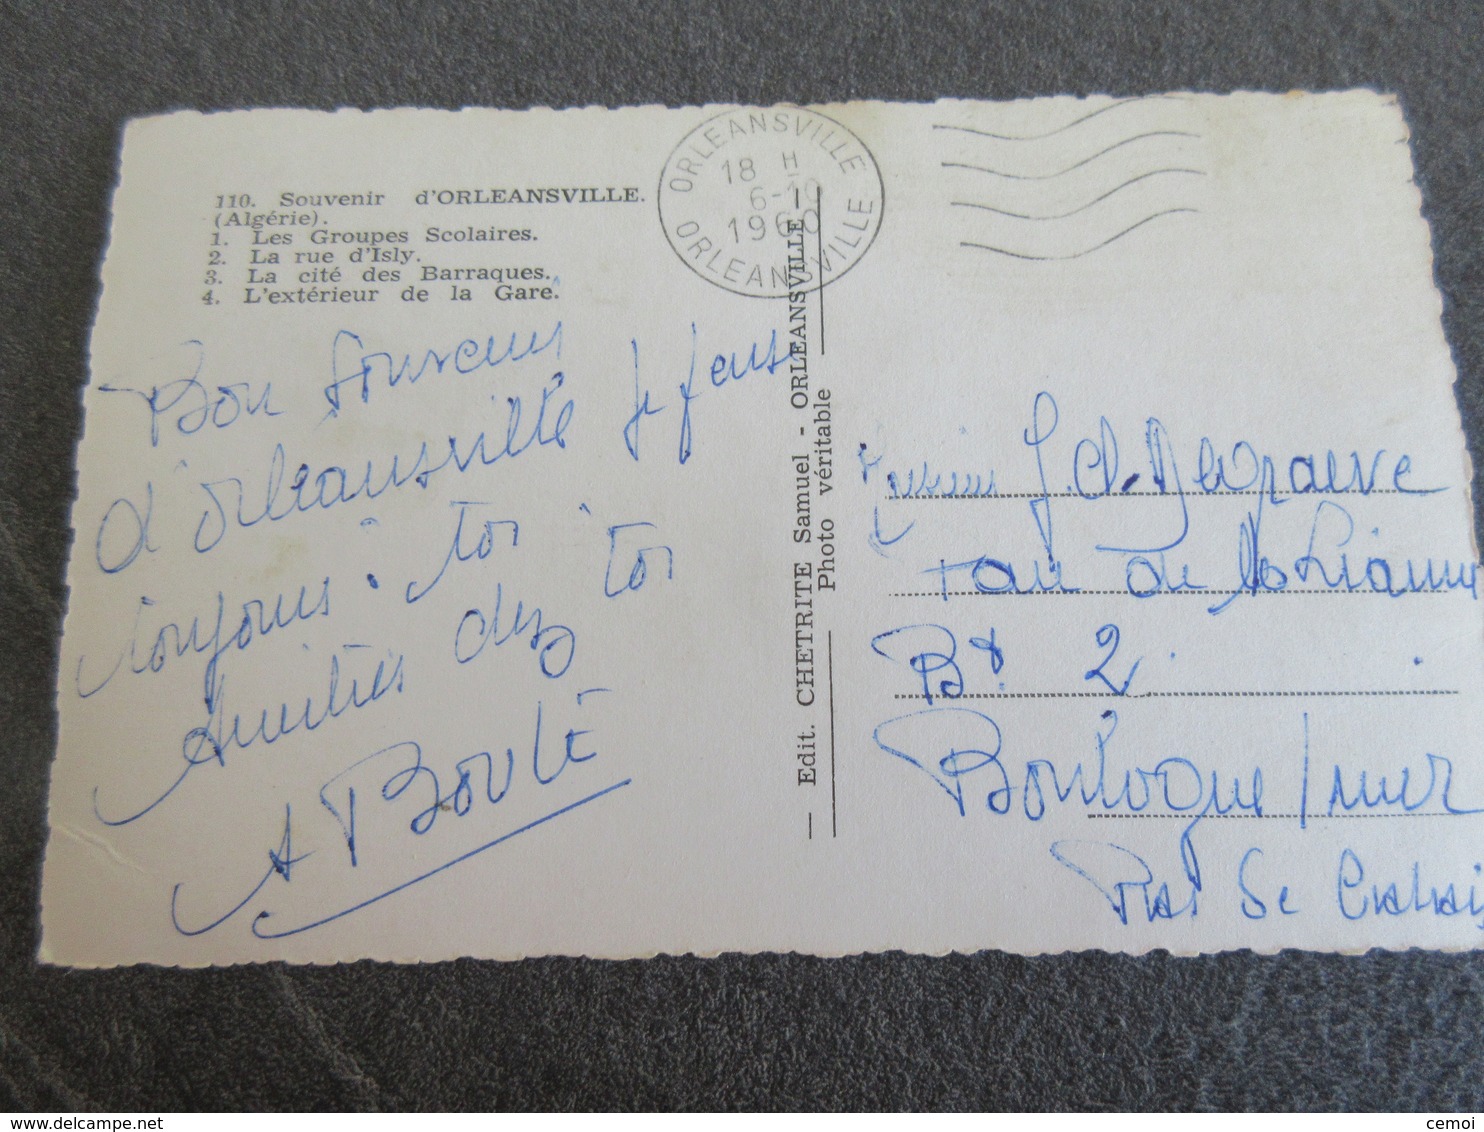 110. Souvenir d'ORLEANSVILLE.
(Algérie).
1. Les Groupes Scolaires.
2. La rue d'Isly.
3. La cité des Barraques.
4. L'extérieur de la Gare.
ORLEANSVILLE
18 H
6-10
1960
ORLEANSVILLE
Bon Souvenir
d'Orleansville Je pense
toujours. toi
Amitiés chez toi
A Boulé
— Edit. CHETRITE Samuel - ORLEANSVILLE —
Photo véritable
J. Ch. Degraeve
de la Liane
Bt 2
Boulogne / mer
Pas de Calais
cemoi